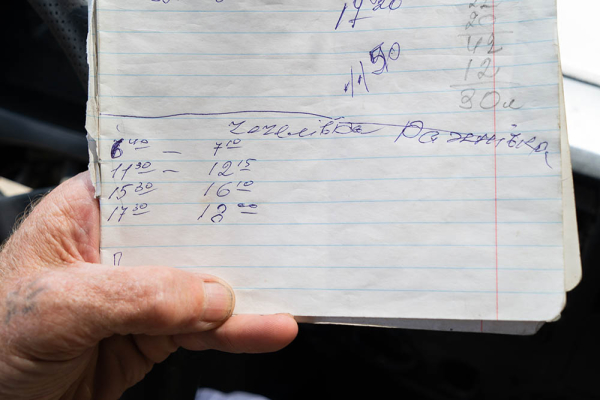 17 20
20
42
11 50
12
30 л
6 40 – 7 10
11 30 – 12 15
15 30 16 10
17 30 18 00
П